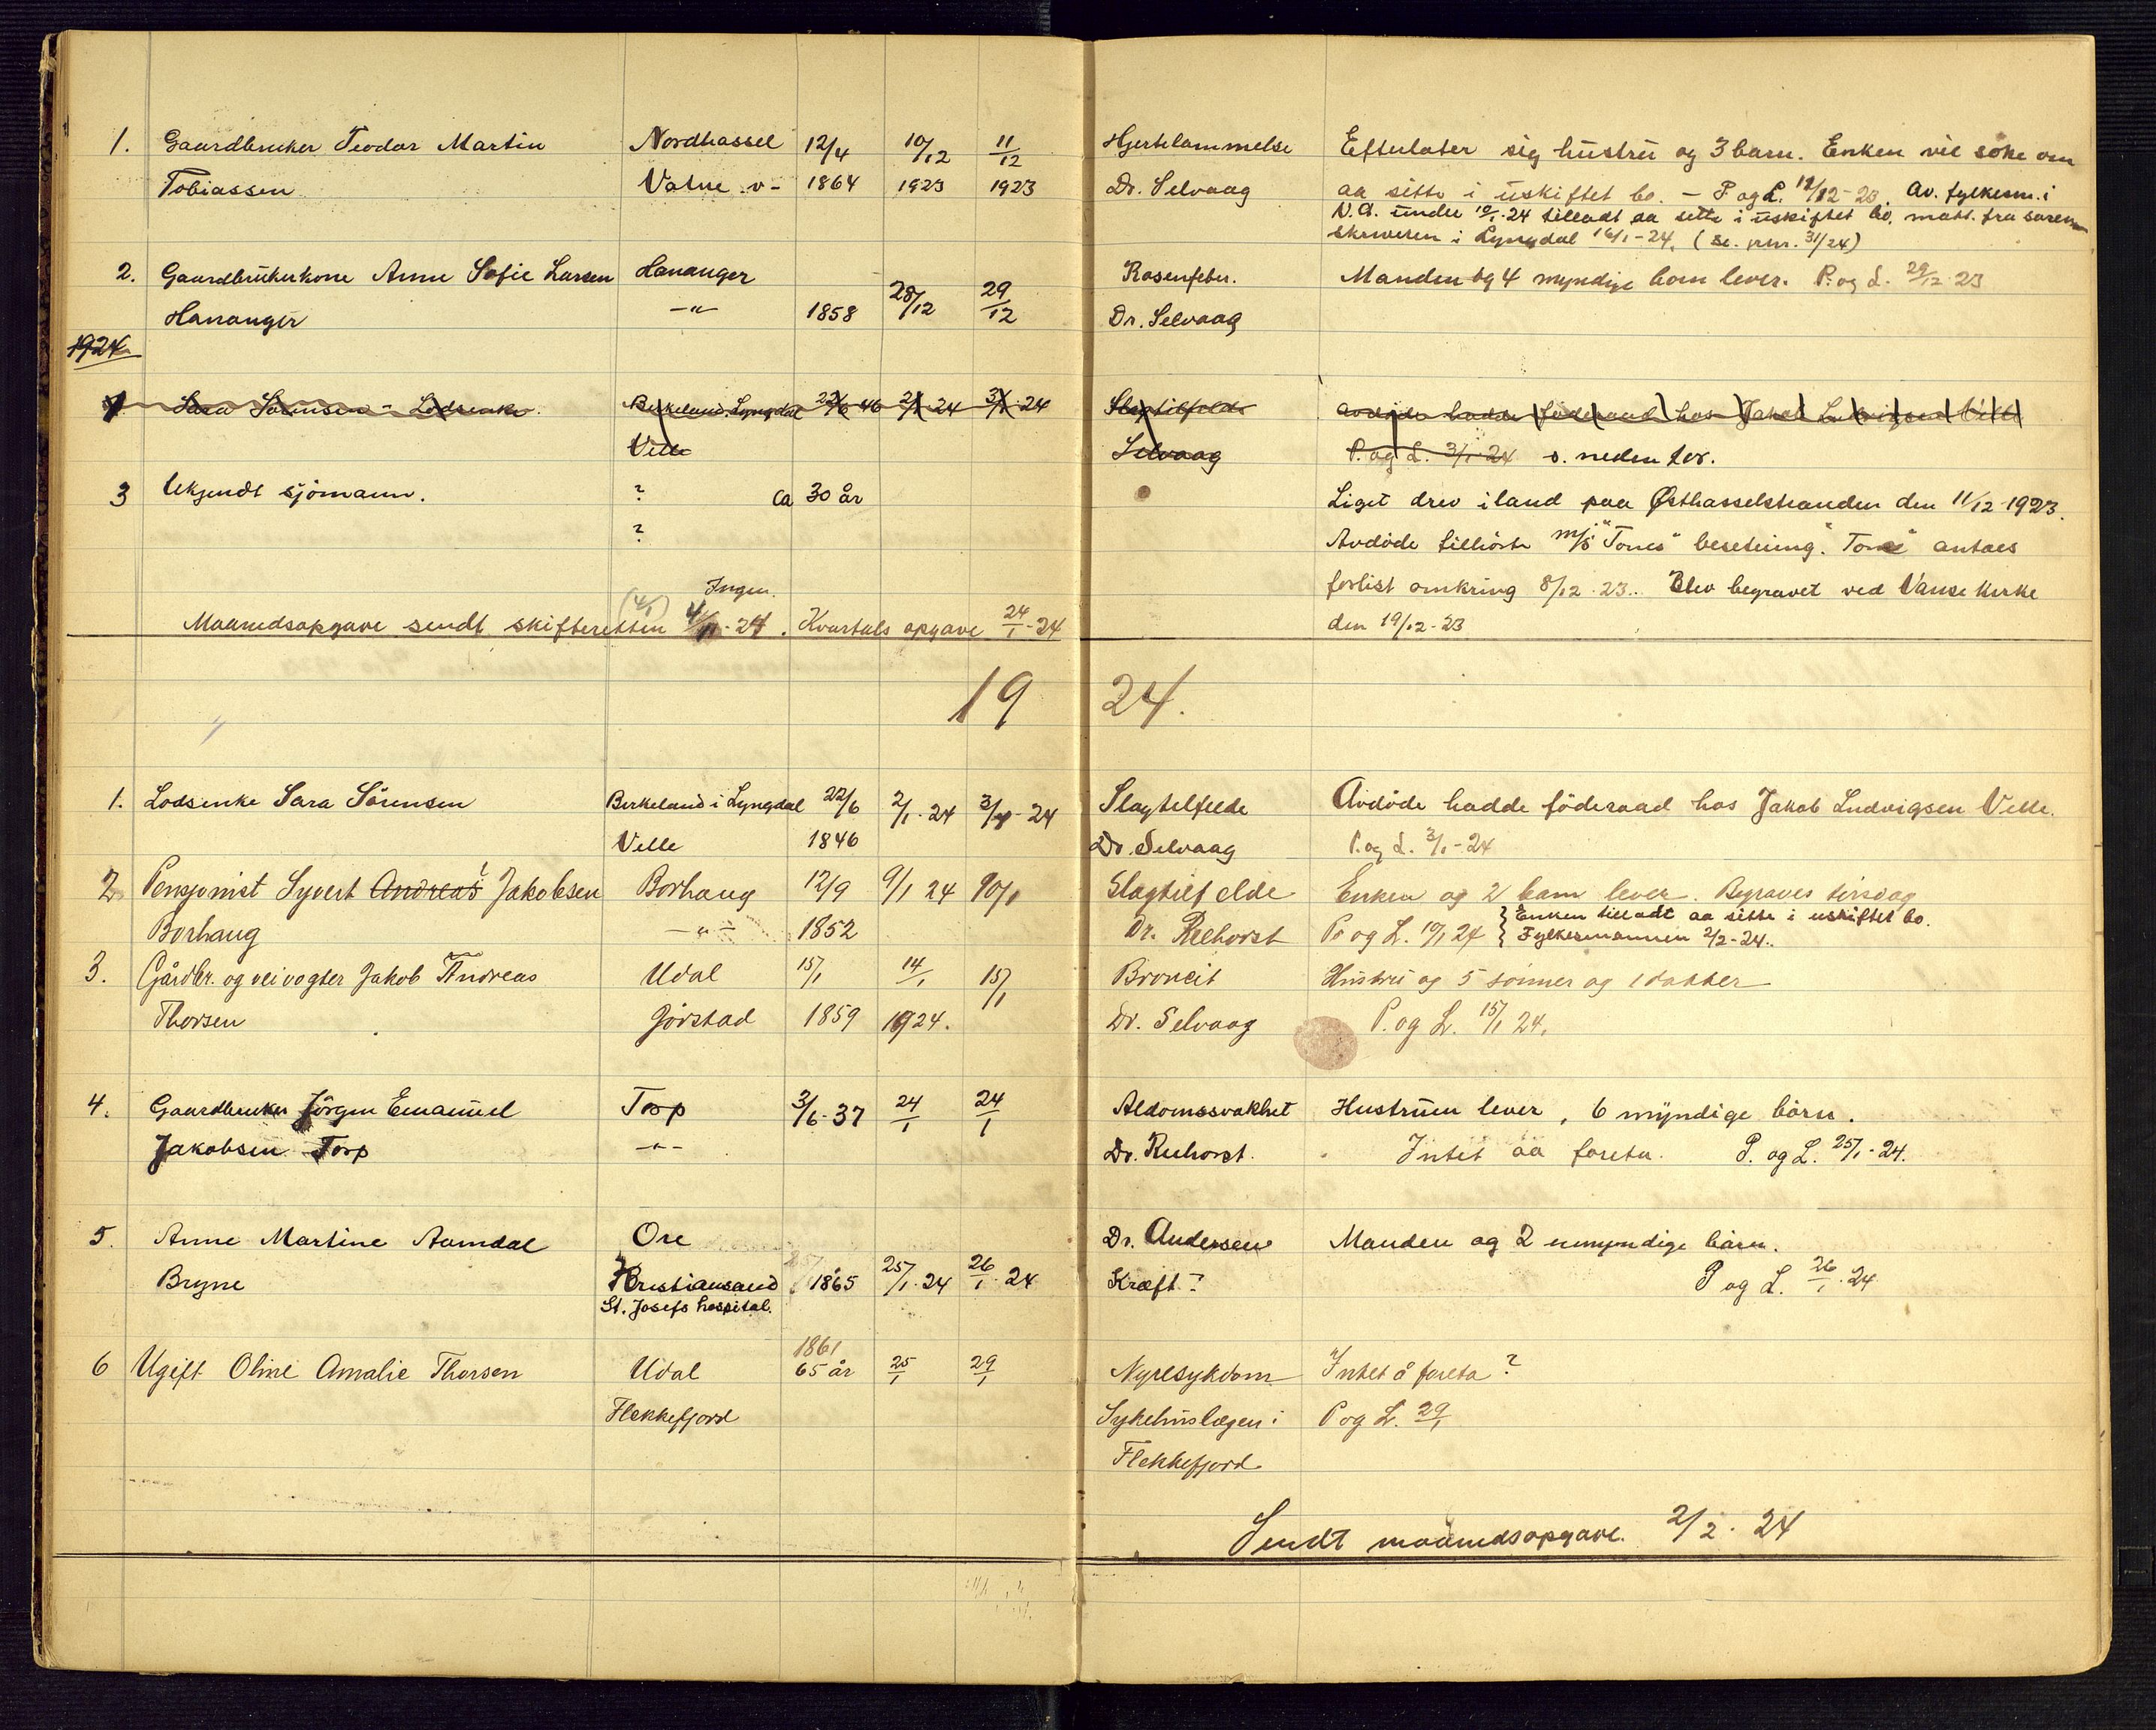 1. Gaardbruker Teodor Martin Nordhassel 12/4 10/12 11/12 Hjertelammelse Efterlater sig hustru og 3 barn. Enken vil søke om
Tobiassen Vatne 1864 1923 1923 Dr. Selvaag aa sitte i uskiftet bo. - P og L. 12/12-23. Av. fylkesm. i
V.A. under 10/1-24 tilladt aa sitte i uskiftet bo, medd. fra soren
skriveren i Lyngdal 16/1-24. (se. jnr. 31/24)
2. Gaardbrukerkone Anne Sofie Larsen Hananger Rosenfeber. Manden og 4 myndige barn lever. P. og L. 29/12-23
Hananger -"- 1858 28/12 29/12 Dr. Selvaag
1924
1 Sara Sørensen - Lodsenke. Birkeland, Lyngdal 22/6 46 2/1 24 3/1 24 Slagtilfelde avdøde hadde føderaad hos Jakob Ludvigsen Velle
Velle Selvaag P. og L. 3/1-24 s. nedenfor.
3 Ukjendt sjömann. ? ca 30 år Liget drev iland paa Østhasselstranden den 11/12-1923.
? Avdöde tilhörte m/s "Tones" besetning. "Tones" antaes
forlist omkring 8/12-23. Blev begravet ved Vanse Kirke
Ingen.
(4/1)
Maanedsopgave sendt skifteretten 4/1-24. Kvartals opgave 24/1-24 den 19/12-23
19 24.
1. Lodsenke Sara Sörensen Birkeland i Lyngdal 22/6 2/1-24 3/1-24 Slagtilfelde Avdöde hadde föderaad hos Jakob Ludvigsen Velle.
Velle 1846 Dr. Selvaag P. og L. 3/1-24
2 Pensjonist Syvert Andreas Jakobsen Borhaug 12/9 9/1 24 10/1 Slagtilfelde Enken og 2 barn lever. Begraves tirsdag
Borhaug -"- 1852 Dr. Reehorst P. og L. 10/1 24 } Enken tilladt aa sitte i uskiftet bo.
} Fylkesmannen 2/2-24..
3. Gårdbr. og veivogter Jakob Andreas Udal 15/1 14/1 15/1 Broncit Hustru og 5 sönner og 1 datter
Thorsen Jörstad 1859 1924. Dr. Selvaag P. og L. 15/1 24.
4. Gaardbruker Jörgen Emanuel Torp 3/6-37 24/1 24/1 Aldomssvakhet Hustruen lever, 6 myndige börn.
Jakobsen Torp -"- Dr. Reehorst. Intet aa foreta. P. og L. 25/1-24.
5. Anne Martine Aamdal Ore Dr. Andersen Manden og 2 umyndige börn.
Bryne Kristiansand 1865 25/1-24 26/1-24 Kræft? P og L. 26/1-24
St. Josefs hospital.
1861
6 Ugift Oline Amalie Thorsen Udal 65 år 25/1 29/1 Nyresykdom Intet å foreta?
Flekkefjord Sykehuslægen i P og L. 29/1
Flekkefjord
Sendt maanedsopgave. 2/2-24